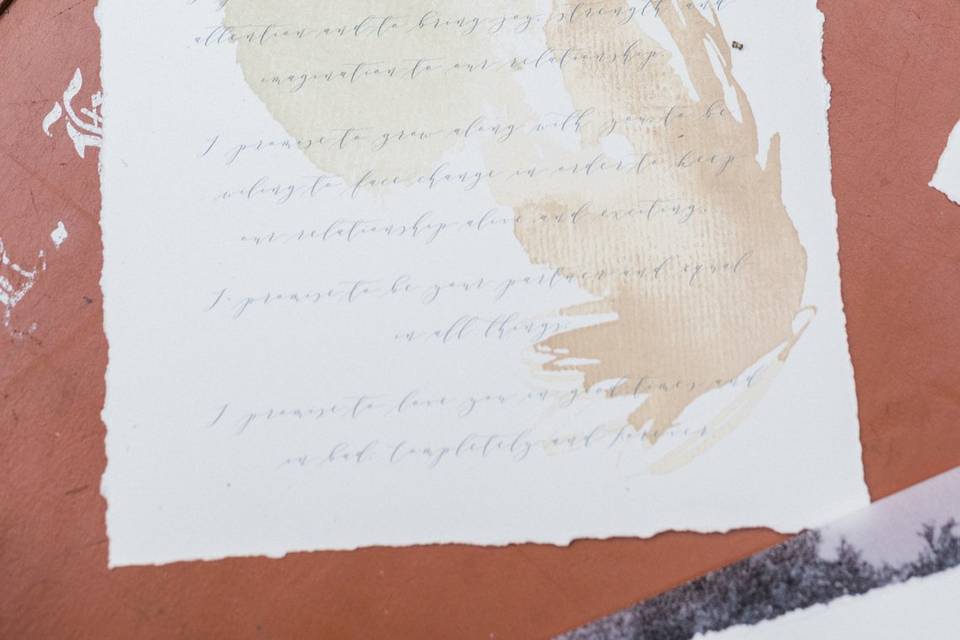 attention and to bring joy, strength and
imagination to our relationship.
I promise to grow along with you to be
wiling to face change in order to keep
our relationship alive and exciting.
I promise to be your partner and equal
in all things.
I promise to love you in good times and
in bad. Completely and forever